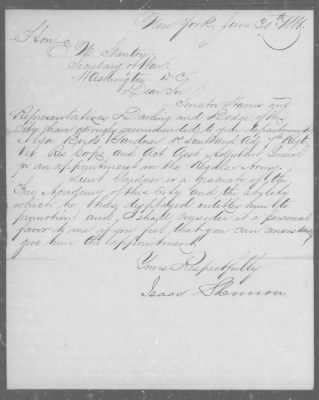 New York, June 30th 1866.
Hon.
E. M. Stanton
Secretary of War.
Washington D C
Dear Sir
Senator Harris and
Representatives Darling and Dodge of this
City have strongly recommended to your department
Asa Bird Gardner 1st Lieut and Adjt 7th Regt
Vet. Res Corps and Act Asst Adjutant General
for an appointment in the Regular Army.
Lieut Gardner is a graduate of the
Free Academy of this City and the ability
which he has displayed entitles him to
promotion and I shall consider it a personal
favor to me if you feel that you can consistently
give him the appointment
Yours Respectfully
Isaac Sherman